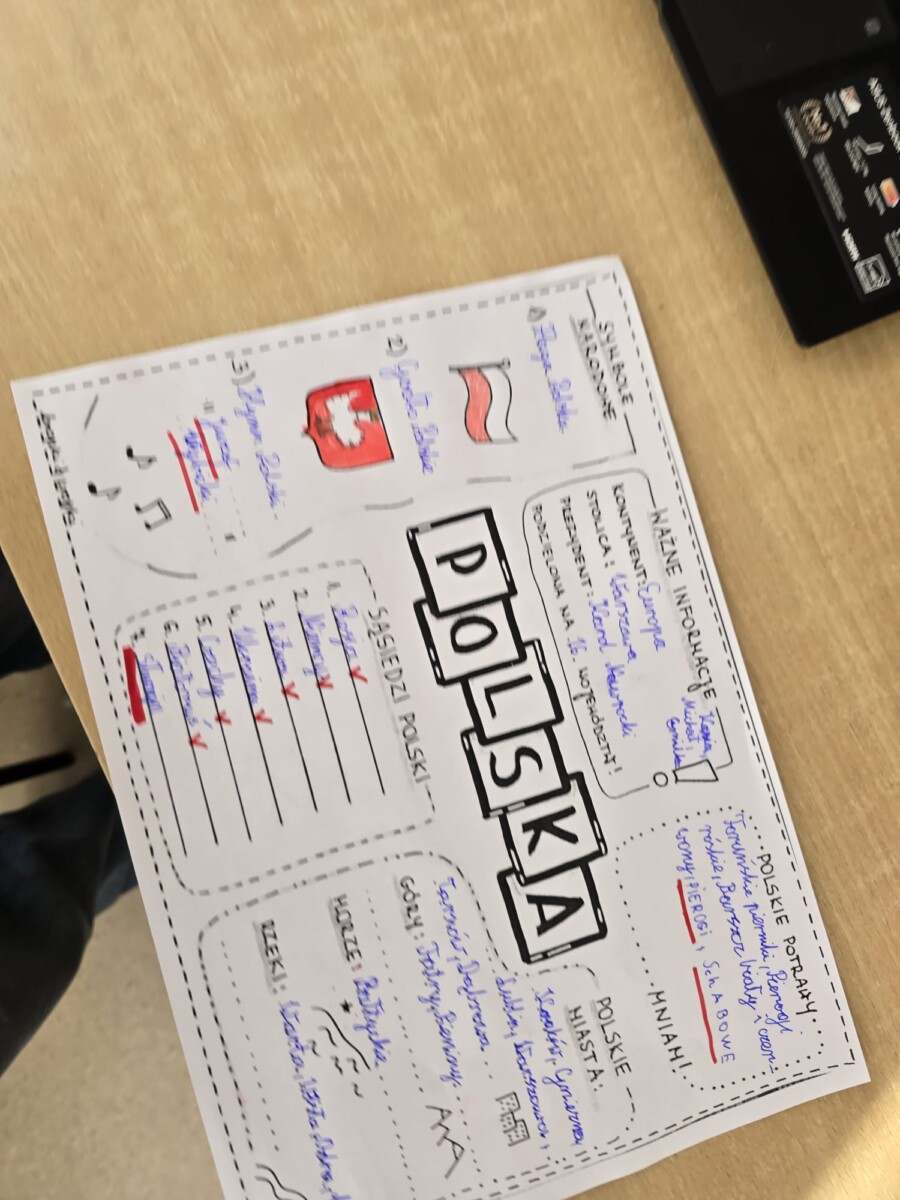 SYMBOLE
NARODOWE
1) Flaga Polski
2) Godło Polski
3) Hymn Polski
WAŻNE INFORMACJE
Kasia,
Michał,
KONTYNENT: Europa
STOLICA: Warszawa
PREZYDENT: Karol Nawrocki
PODZIELONA NA 16 WOJEWÓDZTW!
POLSKIE POTRAWY
Toruńskie pierniki, Pierogi
ruskie, Barszcz biały i czer-
wony, PIEROGI, SchABOWE
MNIAM!
POLSKA
SĄSIEDZI POLSKI
1. Rosja
2. Niemcy
3. Litwa
4. Ukraina
5. Czechy
6. Białoruś
7.
POLSKIE
MIASTA:
Kraków, Gniezno,
Lublin, Warszawa,
Tarnów, Dąbrowa
GÓRY: Tatry, Pieniny
MORZE: Bałtyckie
RZEKI: Warta, Wisła, Odra,
HDMI